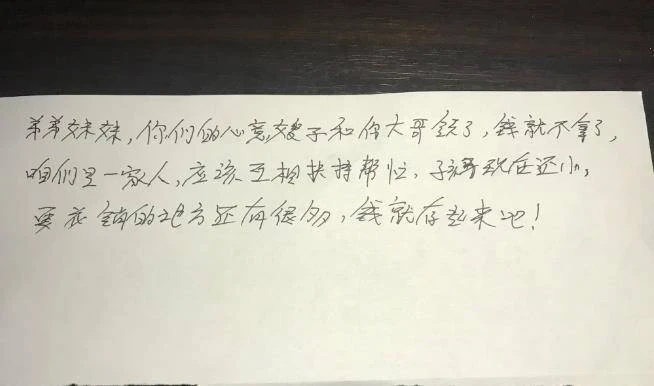 弟弟妹妹，你们的心意，嫂子和你大哥领了，钱就不拿了，
咱们是一家人，应该互相扶持帮忙，孩子现在还小，
要花销的地方还有很多，钱就存起来吧！